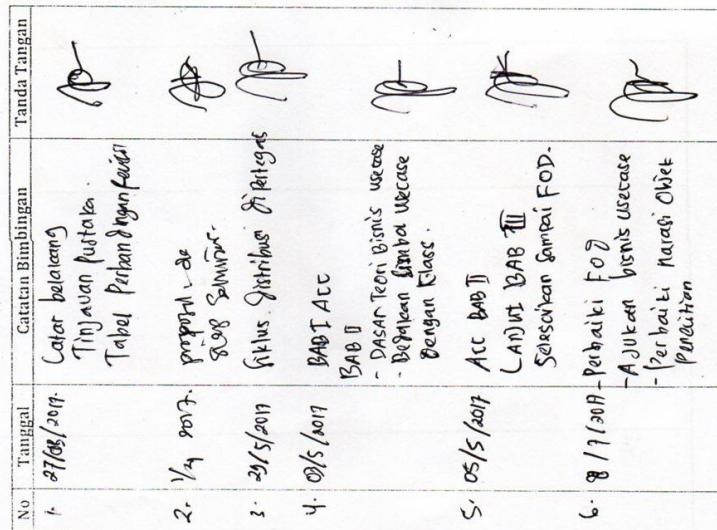 No Tanggal Catatan Bimbingan Tanda Tangan
1. 27/03/2017. Latar belakang
Tinjauan Pustaka.
Tabel Perbandingan
2. 1/4 2017. proposal - ok
Siap Seminar.
3. 29/5/2017 Siklus distribusi dipertegas
4. 02/5/2017 BAB I ACC
BAB II
- DASAR Teori Bisnis usecase
- Bedakan simbol usecase
Dengan Class.
5. 05/5/2017 ACC BAB II
LANJUT BAB III
Selesaikan Sampai FOD.
6. 8/7/2017 - Perbaiki FOD
- Ajukan bisnis usecase
- Perbaiki narasi Objek
Penelitian